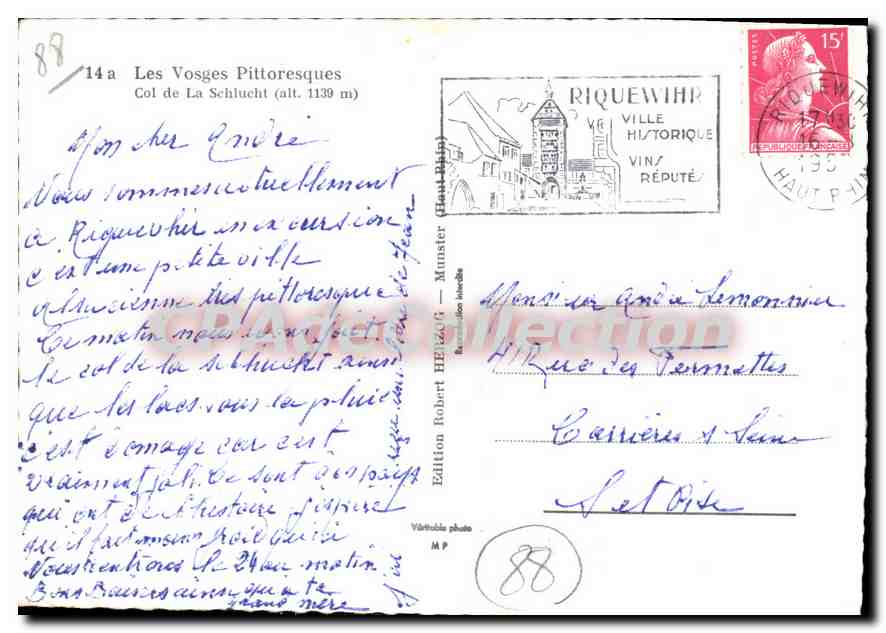 88
14 a Les Vosges Pittoresques
Col de La Schlucht (alt. 1139 m)
Mon cher André
Nous sommes actuellement
à Riquevhir en excursion
c'est une petite ville
alsacienne très pittoresque
Ce matin nous avons fait
le col de la Schlucht ainsi
que les lacs sous la pluie
c'est domage car c'est
vraiment joli. Ce sont des pays
qui ont de l'histoire j'espère
qu'il fait moins froid qu'ici
Nous rentrons le 24 au matin
Bons Baisers ainsi qu'à ta
grand mère
de Jean
Edition Robert HERZOG — Munster (Haut-Rhin)
Reproduction interdite
Véritable photo
M P
RIQUEWIHR
VILLE
HISTORIQUE
VINS
RÉPUTÉS
POSTES
15F
REPUBLIQUE FRANÇAISE
RIQUEWIHR
HAUT RHIN
Monsieur André Lemonnier
41 Rue des Fermettes
Carrières s/ Seine
S et Oise
88
CPACollection